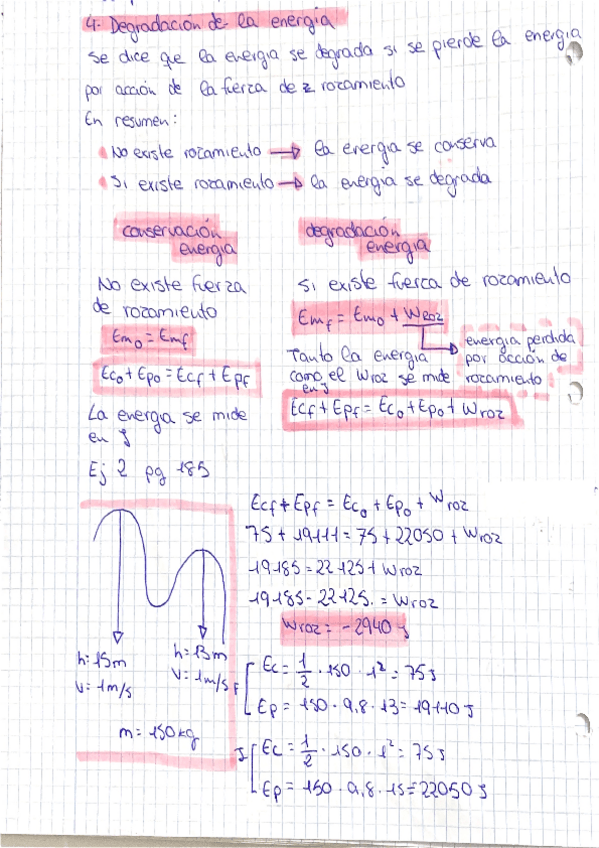 4. Degradación de la energía
Se dice que la energía se degrada si se pierde la energía
por acción de la fuerza de rozamiento
En resumen:
No existe rozamiento → la energía se conserva
Si existe rozamiento → la energía se degrada
conservación
energía
No existe fuerza
de rozamiento
Em₀ = Emf
Ec₀ + Ep₀ = Ecf + Epf
La energía se mide
en J
Ej 2 pg 185
degradación
energía
Si existe fuerza de rozamiento
Emf = Em₀ + Wroz
energía perdida
por acción de
rozamiento
Tanto la energía
como el Wroz se mide
en J
Ecf + Epf = Ec₀ + Ep₀ + Wroz
Ecf + Epf = Ec₀ + Ep₀ + Wroz
75 + 19111 = 75 + 22050 + Wroz
19185 = 22125 + Wroz
19185 - 22125. = Wroz
Wroz = -2940 J
h: 15m
V: 1m/s
h: 13m
V: 1m/s
m = 150kg
F
Ec = 1/2 · 150 · 1² = 75 J
Ep = 150 · 9,8 · 13 = 19110 J
I
Ec = 1/2 · 150 · 1² = 75 J
Ep = 150 · 9,8 · 15 = 22050 J